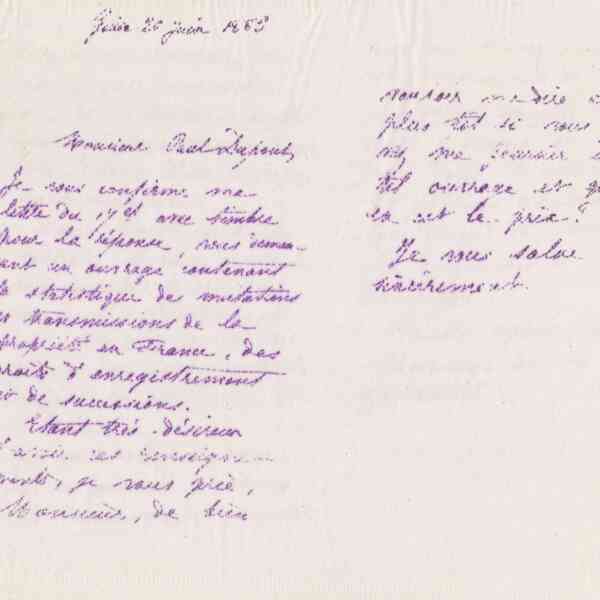 26 juin 1883
Monsieur Paul Dupont,
Je vous confirme ma
lettre du 17 ct avec timbre
pour la réponse, vous deman
ant un ouvrage contenant
la statistique des mutations
transmissions de la
propriété en France, des
roits d'enregistrement
et de successions.
Etant très désireux
ces renseigne
ments, je vous prie,
Monsieur, de bien
vouloir me dire
plus tôt si vous
me fournir
tel ouvrage et
en est le prix?
Je vous salue
sincèrement.